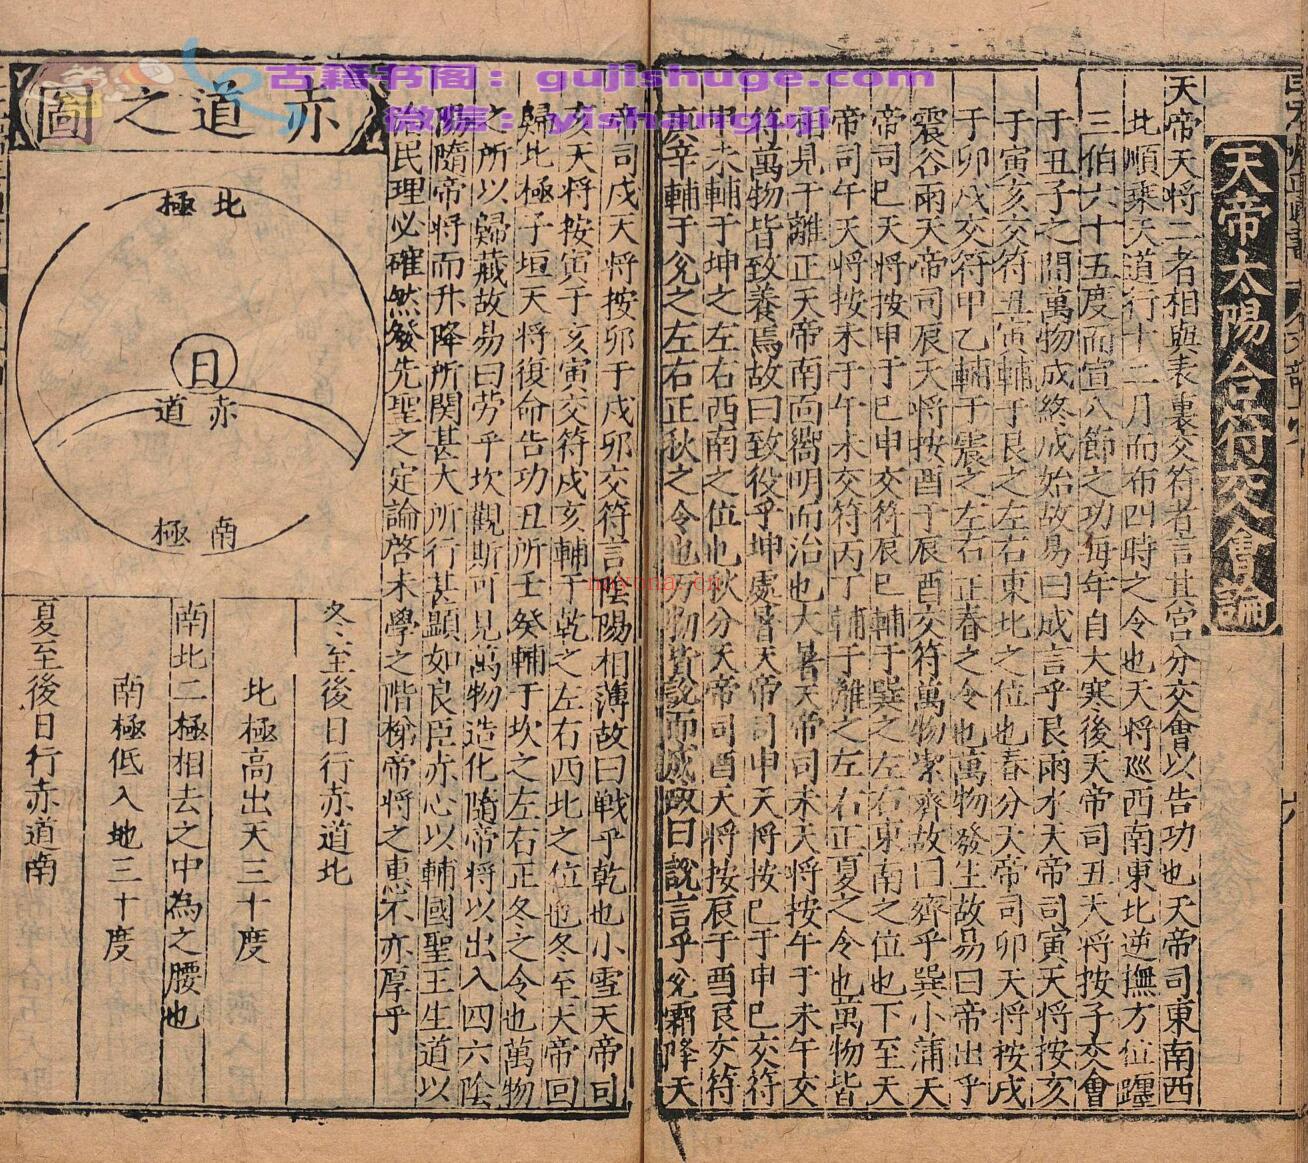 古籍书阁：gujishuge.com
微信：yishanguji
天帝太陽合符交會論
天帝天將二者相與表裏交符者言其宮分交會以告功也天帝司東南西
北順乘天道行十二月而布四時之令也天將廵西南東北逆撫方位躔
三伯六十五度而宣八節之功每年自大寒後天帝司丑天將按子交會
于丑子之間萬物成終成始故易曰成言乎艮雨水天帝司寅天將按亥
于寅亥交符丑寅輔于艮之左右東北之位也春分天帝司卯天將按戌
于卯戌交符甲乙輔于震之左右正春之令也萬物發生故易曰帝出乎
震谷雨天帝司辰天將按酉于辰酉交符萬物絜齊故曰齊乎巽小蒲天
帝司巳天將按申于巳申交符辰巳輔于巽之左右東南之位也下至天
帝司午天將按未于午未交符丙丁輔于離之左右正夏之令也萬物皆
相見于離正天帝南面嚮明而治也大暑天帝司未天將按午于未午交
符萬物皆致養焉故曰致役乎坤處暑天帝司申天將按巳于申巳交符
申未輔于坤之左右西南之位也秋分天帝司酉天將按辰于酉辰交符
庚辛輔于兌之左右正秋之令也万物皆說而成故曰說言乎兌霜降天
帝司戌天將按卯于戌卯交符言陰陽相薄故曰戰乎乾也小雪天帝司
亥天將按寅于亥寅交符戌亥輔于乾之左右西北之位也冬至天帝回
歸北極子垣天將復命告功丑所壬癸輔于坎之左右正冬之令也萬物
之所以歸藏故易曰劳乎坎觀斯可見萬物造化隨帝將以出入四六陰
陽隨帝將而升降所関甚大所行甚顯如良臣亦心以輔國聖王生道以
治民理必確然發先聖之定論啓末學之階梯帝將之惠不亦厚乎
赤道之圖
北極
日
赤道
南極
冬至後日行赤道北
北極高出天三十度
南北二極相去之中為之腰也
南極低入地三十度
夏至後日行赤道南